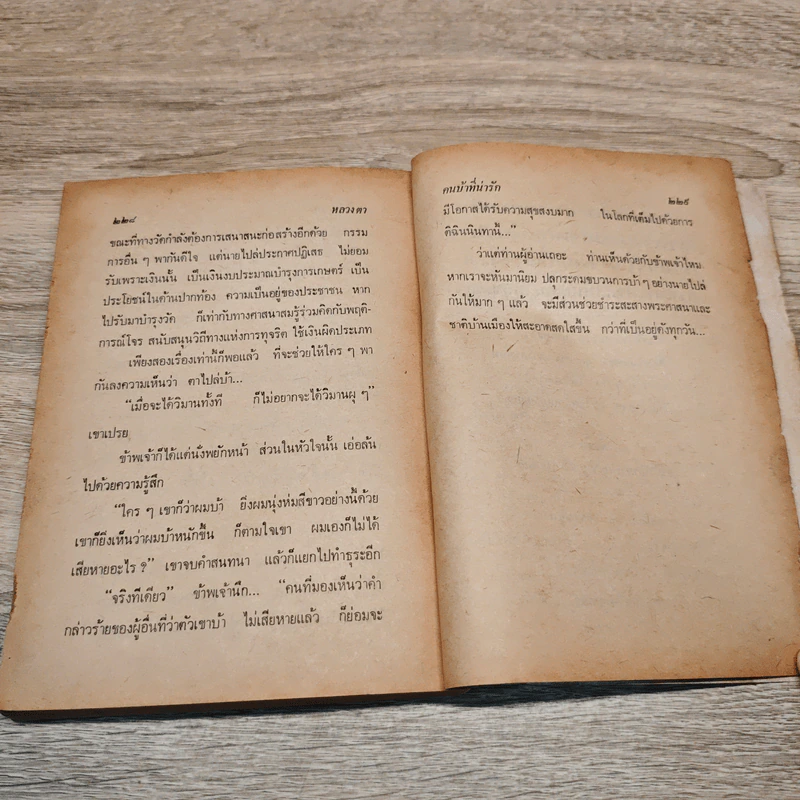 ๒๒๘ หลวงตา
ขณะที่ทางวัดกำลังต้องการเสนาสนะก่อสร้างอีกด้วย กรรม
การอื่น ๆ พากันดีใจ แต่นายไปล่ประกาศปฏิเสธ ไม่ยอม
รับเพราะเงินนั้น เป็นเงินงบประมาณบำรุงการเกษตร์ เป็น
ประโยชน์ในด้านปากท้อง ความเป็นอยู่ของประชาชน หาก
ไปรับมาบำรุงวัด ก็เท่ากับทางศาสนาสมรู้ร่วมคิดกับพฤติ-
การณ์โจร สนับสนุนวิถีทางแห่งการทุจริต ใช้เงินผิดประเภท
เพียงสองเรื่องเท่านี้ก็พอแล้ว ที่จะช่วยให้ใคร ๆ พา
กันลงความเห็นว่า ตาไปล่บ้า...
“เมื่อจะได้วิมานทั้งที ก็ไม่อยากจะได้วิมานผุ ๆ”
เขาเปรย
ข้าพเจ้าก็ได้แต่นั่งพยักหน้า ส่วนในหัวใจนั้น เอ่อล้น
ไปด้วยความรู้สึก
“ใคร ๆ เขาก็ว่าผมบ้า ยิ่งผมนุ่งห่มสีขาวอย่างนี้ด้วย
เขาก็ยิ่งเห็นว่าผมบ้าหนักขึ้น ก็ตามใจเขา ผมเองก็ไม่ได้
เสียหายอะไร ?” เขาจบคำสนทนา แล้วก็แยกไปทำธุระอีก
“จริงทีเดียว” ข้าพเจ้านึก... “คนที่มองเห็นว่าคำ
กล่าวร้ายของผู้อื่นที่ว่าตัวเขาบ้า ไม่เสียหายแล้ว ก็ย่อมจะ
คนบ้าที่น่ารัก ๒๒๙
มีโอกาสได้รับความสุขสงบมาก ในโลกที่เต็มไปด้วยการ
ติฉินนินทานี้...”
ว่าแต่ท่านผู้อ่านเถอะ ท่านเห็นด้วยกับข้าพเจ้าไหม
หากเราจะหันมานิยม ปลุกระดมขบวนการบ้า ๆ อย่างนายไปล่
กันให้มาก ๆ แล้ว จะมีส่วนช่วยชำระสะสางพระศาสนาและ
ชาติบ้านเมืองให้สะอาดสดใสขึ้น กว่าที่เป็นอยู่ดังทุกวัน...